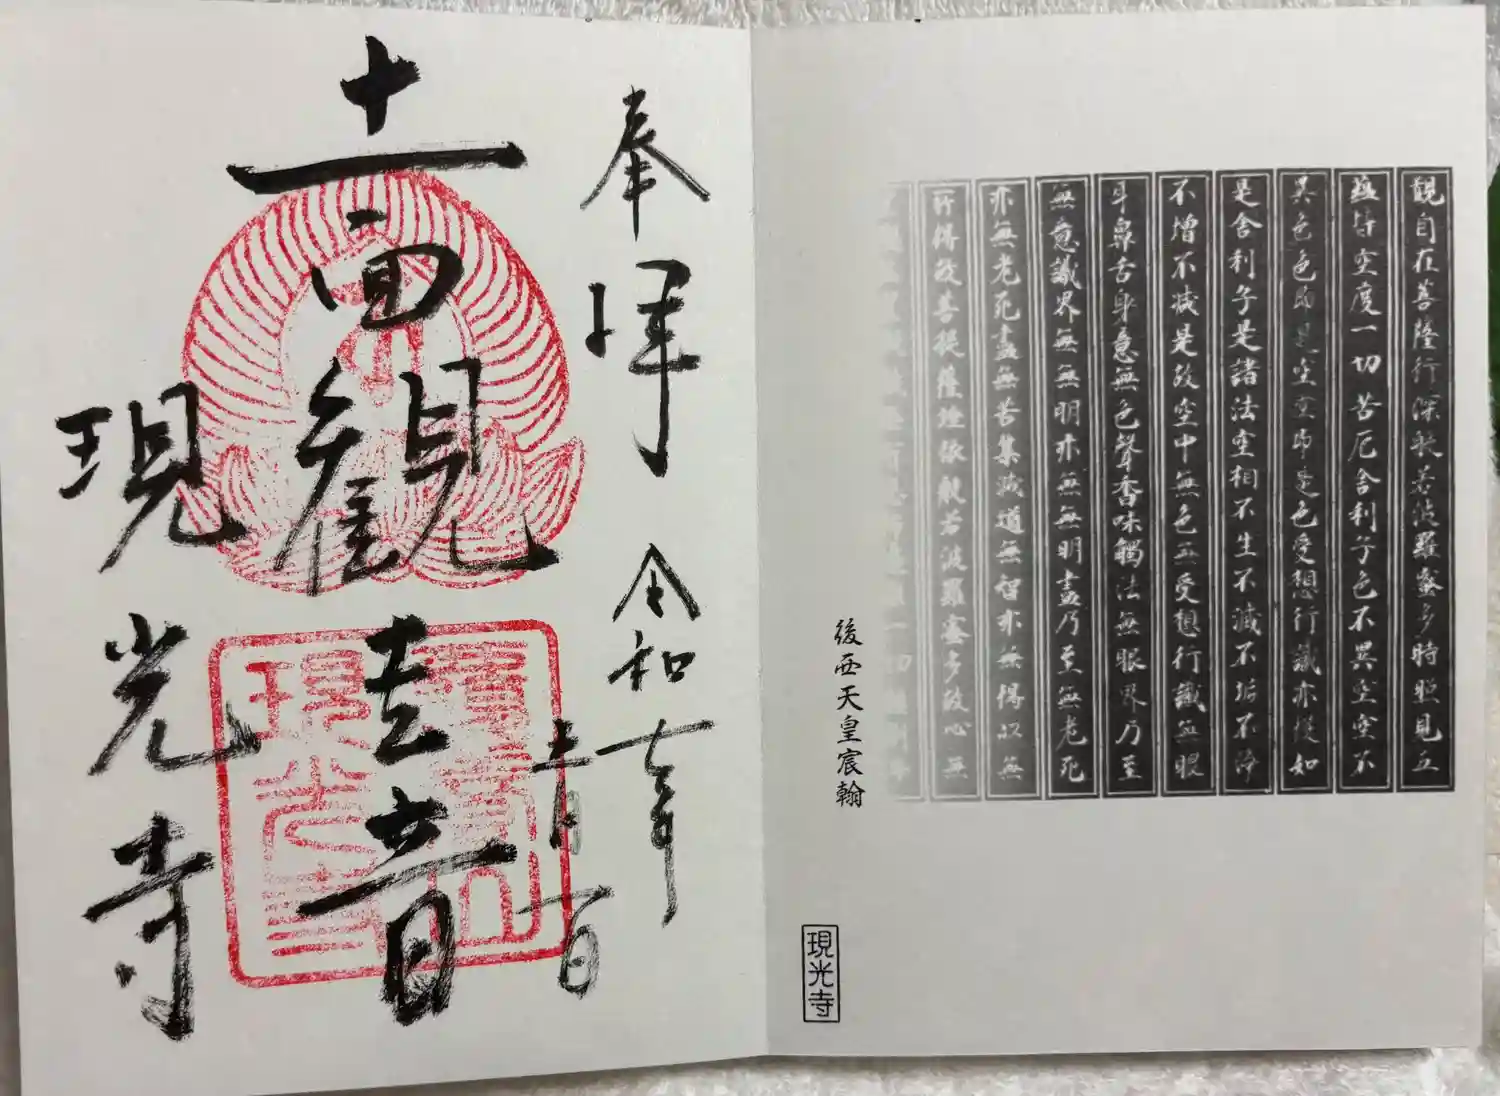 觀自在菩薩行深般若波羅蜜多時照見五
蘊皆空度一切苦厄舍利子色不異空空不
異色色即是空空即是色受想行識亦復如
是舍利子是諸法空相不生不滅不垢不淨
不增不減是故空中無色無受想行識無眼
耳鼻舌身意無色聲香味觸法無眼界乃至
無意識界無無明亦無無明盡乃至無老死
亦無老死盡無苦集滅道無智亦無得以無
所得故菩提薩埵依般若波羅蜜多故心無
後西天皇宸翰
現光寺
奉拝
令和年
十一月一日
十一面観世音
現光寺